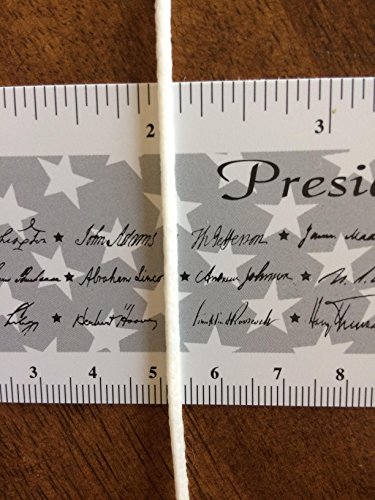 2 3
Presi
John Adams ★ Th Jefferson ★ James Ma
★ Abraham Linco ★ Andrew Johnson ★
Herbert Hoover ★ Franklin D Roosevelt ★ Harry Truma
3 4 5 6 7 8